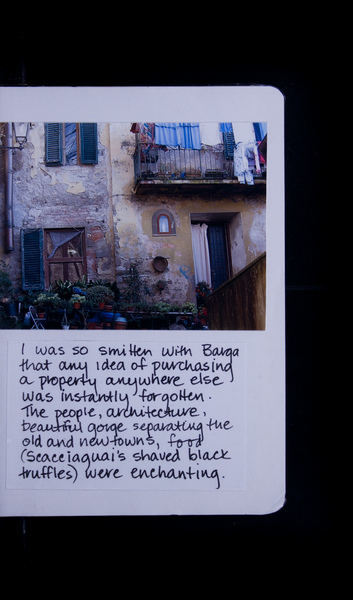 I was so smitten with Barga
that any idea of purchasing
a property anywhere else
was instantly forgotten.
The people, architecture,
beautiful gorge separating the
old and new towns, food
(Scacciaguai's shaved black
truffles) were enchanting.